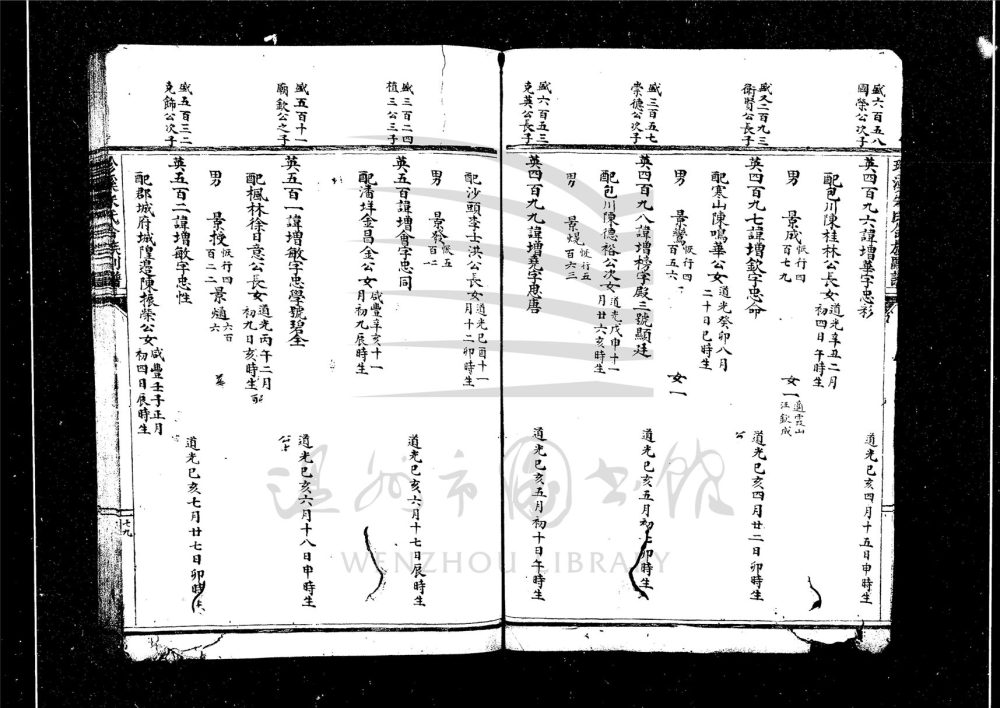 盛六百五八
國榮公次子
英四百九六諱增華字忠衫
道光己亥四月十五日申時生
配包川陳桂林公長女道光辛丑二月
初四日午時生
男 景成恆行四
百七九
女一適霞山
汪欽成
盛又二百九三
衛賢公長子
英四百九七諱增欽字忠命
道光己亥四月廿二日卯時生
配寒山陳鳴華公女道光癸卯八月
二十日巳時生
男 景鸞恆行四
百五六
女一
盛三百五七
崇德公次子
英四百九八諱增榜字殿三號顯廷
道光己亥五月初卯時生
配包川陳德裕公次女道光戊申十一
月廿六亥時生
男 景焜恆行五
百六三
盛六百五三
克英公長子
英四百九九諱增堯字忠唐
道光己亥五月初十日午時生
配沙頭李士洪公長女道光己酉十一
月十二卯時生
男 景發恆五
百二
盛三百二四
植三公三子
英五百諱增會字忠同
道光己亥六月十七日辰時生
配潘垟金昌金公女咸豐辛亥十一
月初九辰時生
盛五百十一
顯欽公之子
英五百一諱增敏字忠學號碧全
道光己亥六月十八日申時生
配楓林徐日意公長女道光丙午二月
初九日亥時生
男 景授恆行四
百二二
景
六百
六
盛五百三二
克飾公次子
英五百二諱增敏字忠性
道光己亥七月廿七日卯時生
配郡城府城隍邊陳振榮公女咸豐壬子正月
初四日辰時生
七九
温州市圖書館
WENZHOU LIBRARY